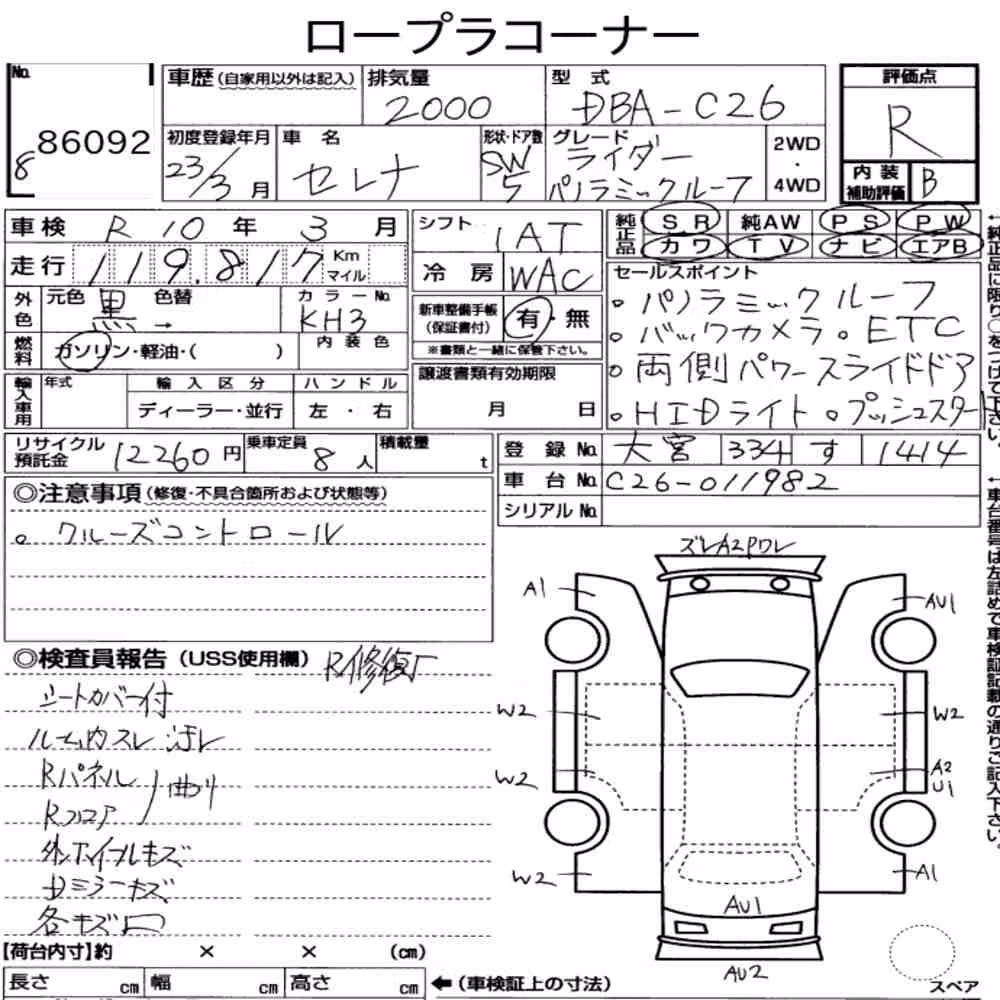 ロープラコーナー
No.
8 86092
車歴(自家用以外は記入)
排気量
2000
型式
DBA-C26
評価点
R
初度登録年月
23/3月
車名
セレナ
形状・ドア数
SW
5
グレード
ライダー
パノラミックルーフ
2WD
・
4WD
内装
補助評価
B
車検 R 10年 3月
走行 119,817 Km
マイル
外色
元色 黒 → 色替
カラーNo.
KH3
内装色
燃料
ガソリン・軽油・( )
輸入車用
年式
輸入区分
ディーラー・並行
ハンドル
左・右
シフト
IAT
冷房
WAC
新車整備手帳
(保証書付)
有・無
※書類と一緒に保管下さい。
譲渡書類有効期限
月 日
純正品
SR 純AW PS PW
カワ TV ナビ エアB
セールスポイント
○パノラミックルーフ
○バックカメラ○ETC
○両側パワースライドドア
○HIDライト○プッシュスタート
リサイクル
預託金
12260円
乗車定員
8人
積載量
t
登録No. 大宮 334 す 1414
車台No. C26-011982
シリアルNo.
◎注意事項(修復・不具合箇所および状態等)
○クルーズコントロール
◎検査員報告(USS使用欄) R修復
シートカバー付
ルーム内スレ 汚レ
Rパネル
Rフロア
曲り
外 アイフルキズ
Dミラーキズ
各キズ凹
【荷台内寸】約 × × (cm)
長さ cm 幅 cm 高さ cm
←(車検証上の寸法)
ズレA2Pワレ
A1
AU1
W2
W2
W2
A2
U1
W2
A1
AU1
AU2
スペア
←純正品に限り○をつけて下さい。
←車台番号は左詰めで車検証記載の通りご記入下さい。